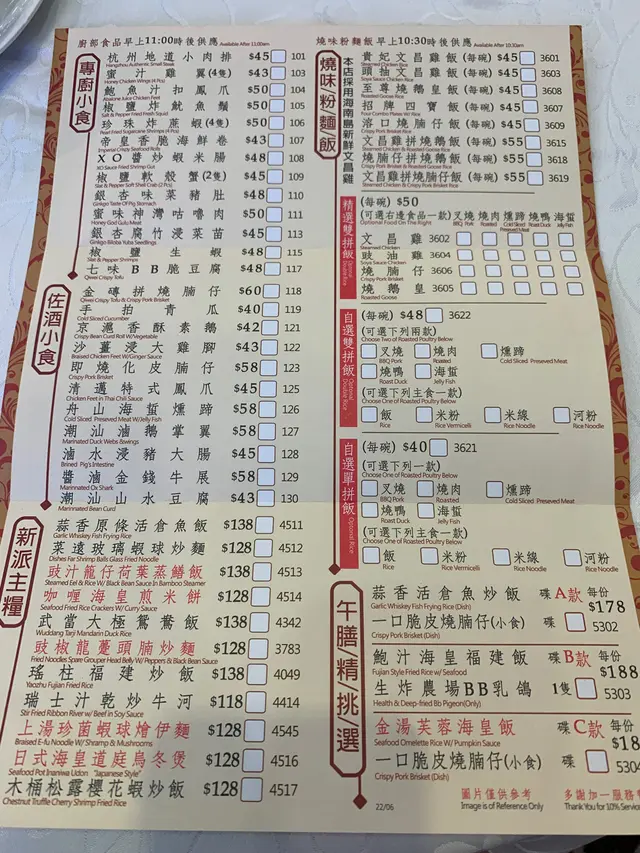 廚部食品早上11:00時後供應 Available After 11:00am
專廚小食
杭州地道小肉排 $45 101
Hangzhou Authentic Small Steak
蜜汁雞翼(4隻) $43 103
Honey Chicken Wings (4 Pcs)
鮑魚汁扣鳳爪 $50 104
Abalone Juice Chicken Feet
椒鹽炸魷魚鬚 $50 105
Salt & Pepper Fried Fresh Squid
珍珠炸蔗蝦(4隻) $50 106
Pearl Fried Sugarcane Shrimps (4 Pcs)
帝皇香脆海鮮卷 $43 107
Imperial Crispy Seafood Rolls
XO醬炒蝦米腸 $48 108
XO Sauce Fried Shrimp Gut
椒鹽軟殼蟹(2隻) $45 109
Slat & Pepper Soft Shell Crab (2 Pcs)
銀杏味菜豬肚 $48 110
Ginkgo Taste Of Pig Stomach
蜜味神灣咕嚕肉 $50 111
Honey God Gulu Meat
銀杏腐竹浸菜苗 $45 113
Ginkgo Biloba Yuba Seedlings
椒鹽生蝦 $48 115
Slat & Pepper Shrimps
七味BB脆豆腐 $48 117
Qiwei Crispy Tofu
佐酒小食
金磚拼燒腩仔 $60 118
Qiwei Crispy Tofu & Crispy Pork Brisket
手拍青瓜 $40 119
Cold Sliced Cucumber
京滬香酥素鵝 $42 121
Crispy Bean Curd Roll W/Vegetable
沙薑浸大雞腳 $43 122
Braised Chicken Feet W/Ginger Sauce
即燒化皮腩仔 $58 123
Crispy Pork Brisket
清邁特式鳳爪 $45 125
Chicken Feet in Thai Chili Sauce
舟山海蜇燻蹄 $58 126
Cold Sliced Preseved Meat W/Jelly Fish
潮汕滷鵝掌翼 $58 127
Marinated Duck Webs &wings
滷水浸豬大腸 $45 128
Brined Pig's Intestine
醬滷金錢牛展 $58 129
Marinated Ox Shark
潮汕山水豆腐 $43 130
Marinated Bean Curd
新派主糧
蒜香原條活倉魚飯 $138 4511
Garlic Whiskey Fish Frying Rice
菜遠玻璃蝦球炒麵 $128 4512
Dishes Far Shrimp Balls Glass Fried Noodle
豉汁龍仔荷葉蒸鱔飯 $138 4513
Steamed Eel & Rice W/ Black Bean Sauce In Bamboo Steamer
咖喱海皇煎米餅 $128 4514
Seafood Fried Rice Crackers W/ Curry Sauce
武當大極鴛鴦飯 $138 4342
Wuddang Tarji Mandarin Duck Rice
豉椒龍躉頭腩炒麵 $128 3783
Fried Noodles Spare Grouper Head Belly W/ Peppers & Black Bean Sauce
瑤柱福建炒飯 $138 4049
Yaozhu Fujian Fried Rice
瑞士汁乾炒牛河 $118 4414
Stir Fried Ribbon River w/ Beef in Soy Sauce
上湯珍菌蝦球燴伊麵 $128 4545
Braised E-fu Noodle W/Shramp & Mushrooms
日式海皇道庭烏冬煲 $128 4516
Seafood Pot Inaniwa Udon "Japanese Style"
木桶松露櫻花蝦炒飯 $128 4517
Chestnut Truffle Cherry Shrimp Fried Rice
燒味粉麵飯早上10:30時後供應 Available After 10:30am
燒味/粉/麵/飯
本店採用海南島新鮮文昌雞
貴妃文昌雞飯(每碗) $45 3601
Steamed Chicken Rice
頭抽文昌雞飯(每碗) $45 3603
Soya Sauce Chicken Rice
至尊燒鵝飯(每碗) $45 3608
Roasted Goose Rice
招牌四寶飯(每碗) $45 3607
Four Combo Please W/ Rice
溶口燒腩仔飯(每碗) $45 3609
Crispy Pork Brisket Rice
文昌雞拼燒鵝飯(每碗) $55 3615
Steamed Chicken & Roasted Goose Rice
燒腩仔拼燒鵝飯(每碗) $55 3618
Crispy Pork Brisket & Roasted Goose Rice
文昌雞拼燒腩仔飯(每碗) $55 3619
Steamed Chicken & Crispy Pork Brisket Rice
精選雙拼飯 Optional Double Rice
(每碗) $50
(可選右邊食品一款) 叉燒 燒肉 燻蹄 燒鴨 海蜇
Optional Food On The Right BBQ Pork Roasted Cold Sliced Preseved Meat Roast Duck Jelly Fish
文昌雞 3602
Steamed Chicken
豉油雞 3604
Soya Sauce Chicken
燒腩仔 3606
Crispy Pork Brisket
燒鵝皇 3605
Roasted Goose
自選雙拼飯 Optional Double Rice
(每碗) $48 3622
(可選下列兩款)
Choose Two of Roasted Poultry Below
叉燒 燒肉 燻蹄
BBQ Pork Roasted Cold Sliced Preseved Meat
燒鴨 海蜇
Roast Duck Jelly Fish
(可選下列主食一款)
Choose One of Roasted Poultry Below
飯 米粉 米線 河粉
Rice Rice Vermicelli Rice Noodle Rice Noodle
自選單拼飯 Optional Rice
(每碗) $40 3621
(可選下列一款)
Choose One of Roasted Poultry Below
叉燒 燒肉 燻蹄
BBQ Pork Roasted Cold Sliced Preseved Meat
燒鴨 海蜇
Roast Duck Jelly Fish
(可選下列主食一款)
Choose One of Roasted Poultry Below
飯 米粉 米線 河粉
Rice Rice Vermicelli Rice Noodle Rice Noodle
午膳/精/挑/選
蒜香活倉魚炒飯 碟 A款 每份
Garlic Whiskey Fish Frying Rice (Dish) $178
一口脆皮燒腩仔(小食) 碟 5302
Crispy Pork Brisket (Dish)
鮑汁海皇福建飯 碟 B款 每份
Fujian Style Fried Rice W/ Seafood $188
生炸農場BB乳鴿 1隻 5303
Health & Deep-fried Bb Pigeon(Only)
金湯芙蓉海皇飯 碟 C款 每份
Seafood Omelette Rice W/ Pumpkin Sauce $18
一口脆皮燒腩仔(小食) 碟 5304
Crispy Pork Brisket (Dish)
22/06
圖片僅供參考
Image is of Reference Only
多謝加一服務
Thank You for 10% Service